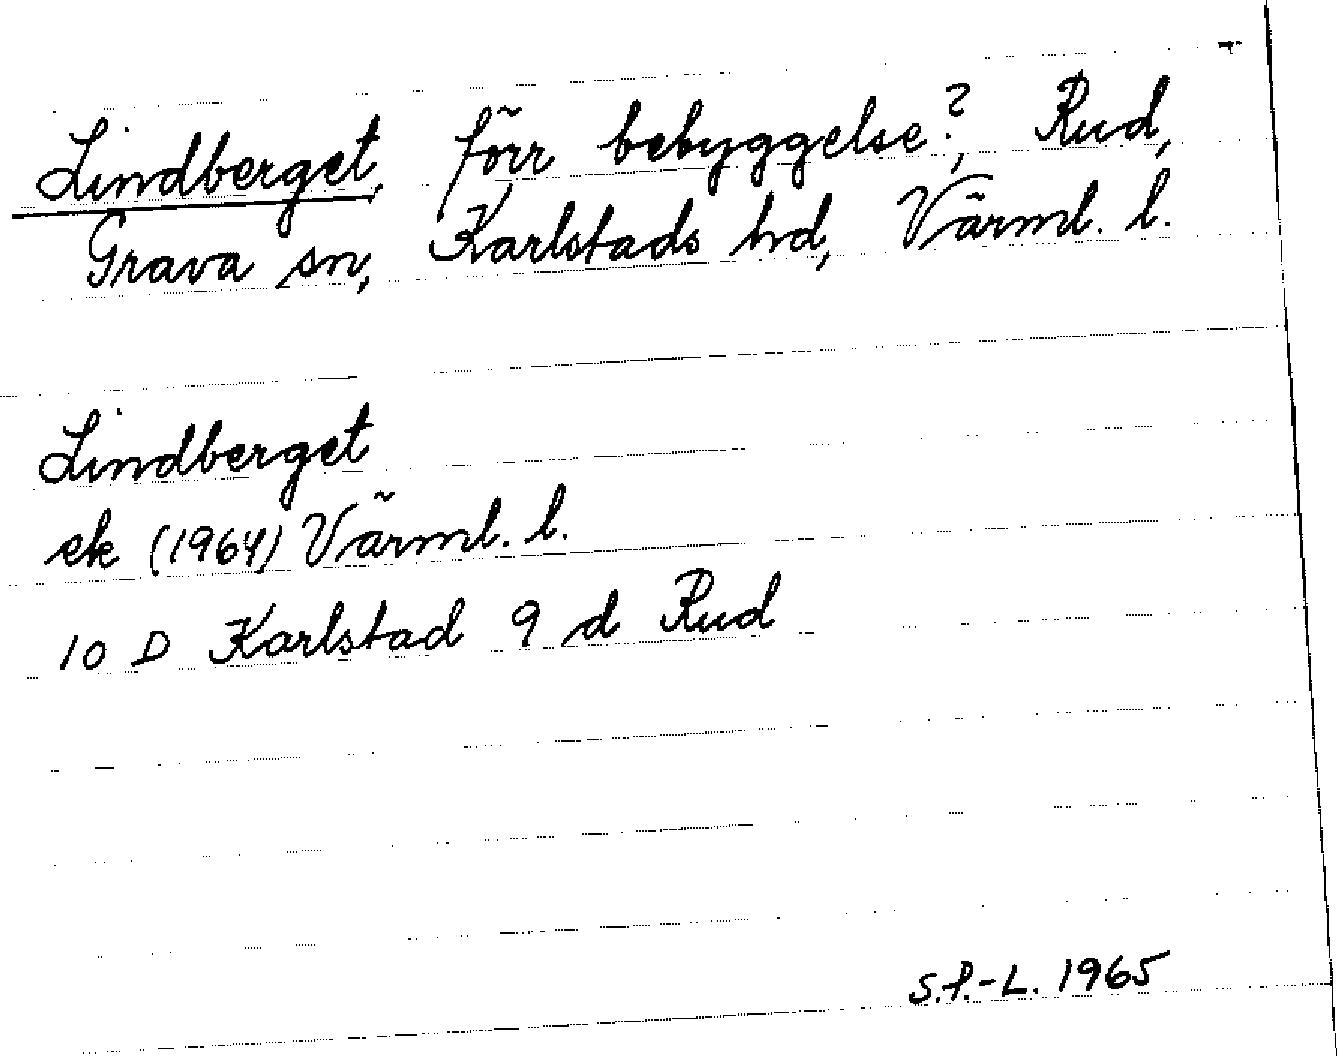 Lindberget, förr bebyggelse?, Rud,
Grava sn, Karlstads hd, Värml. l.
Lindberget
ek (1964) Värml. l.
10 D Karlstad 9 d Rud
S.P.-L. 1965